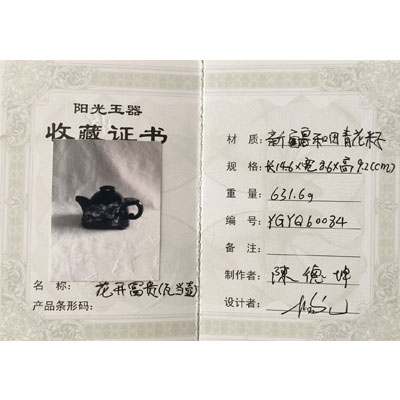 阳光玉器
收藏证书
名 称: 花开富贵(瓦当壶)
产品条形码:
材 质: 新疆和田青花籽
规 格: 长14.6x宽8.6x高9.2(cm)
重 量: 631.6g
编 号: YGYQ60084
备 注:
制作者: 陳德坤
设计者: